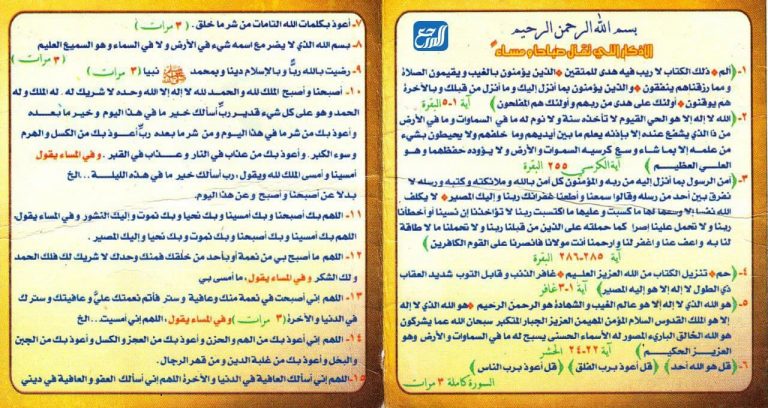 بسم الله الرحمن الرحيم
المرجع
الأذكار التي تقال صباحا ومساء
١- ﴿ألم ۞ ذلك الكتاب لا ريب فيه هدى للمتقين ۞ الذين يؤمنون بالغيب ويقيمون الصلاة
ومما رزقناهم ينفقون ۞ والذين يؤمنون بما أنزل إليك وما أنزل من قبلك وبالآخرة
هم يوقنون ۞ أولئك على هدى من ربهم وأولئك هم المفلحون﴾ آية ١-٥ البقرة
٢- ﴿الله لا إله إلا هو الحي القيوم لا تأخذه سنة ولا نوم له ما في السماوات وما في الأرض
من ذا الذي يشفع عنده إلا بإذنه يعلم ما بين أيديهم وما خلفهم ولا يحيطون بشيء
من علمه إلا بما شاء وسع كرسيه السموات والأرض ولا يؤوده حفظهما وهو
العلي العظيم﴾ آية الكرسي ٢٥٥ البقرة
٣- ﴿آمن الرسول بما أنزل إليه من ربه والمؤمنون كل آمن بالله وملائكته وكتبه ورسله لا
نفرق بين أحد من رسله وقالوا سمعنا وأطعنا غفرانك ربنا وإليك المصير ۞ لا يكلف
الله نفسا إلا وسعها لها ما كسبت وعليها ما اكتسبت ربنا لا تؤاخذنا إن نسينا أو أخطأنا
ربنا ولا تحمل علينا إصرا كما حملته على الذين من قبلنا ربنا ولا تحملنا ما لا طاقة
لنا به واعف عنا واغفر لنا وارحمنا أنت مولانا فانصرنا على القوم الكافرين﴾
آية ٢٨٥-٢٨٦ البقرة
٤- ﴿حم ۞ تنزيل الكتاب من الله العزيز العليم ۞ غافر الذنب وقابل التوب شديد العقاب
ذي الطول لا إله إلا هو إليه المصير﴾ آية ١-٣ غافر
٥- ﴿هو الله الذي لا إله إلا هو عالم الغيب والشهادة هو الرحمن الرحيم ۞ هو الله الذي لا إله
إلا هو الملك القدوس السلام المؤمن المهيمن العزيز الجبار المتكبر سبحان الله عما يشركون
هو الله الخالق البارىء المصور له الأسماء الحسنى يسبح له ما في السماوات والأرض وهو
العزيز الحكيم﴾ آية ٢٢-٢٤ الحشر
٦- ﴿قل هو الله أحد﴾ ﴿قل أعوذ برب الفلق﴾ ﴿قل أعوذ برب الناس﴾
السورة كاملة ٣ مرات
٧- أعوذ بكلمات الله التامات من شر ما خلق. (٣ مرات)
٨- بسم الله الذي لا يضر مع اسمه شيء في الأرض ولا في السماء وهو السميع العليم
(٣ مرات)
٩- رضيت بالله ربًّا وبالإسلام دينا وبمحمد ﷺ نبيا (٣ مرات)
١٠- أصبحنا وأصبح الملك لله والحمد لله لا إله إلا الله وحده لا شريك له. له الملك وله
الحمد وهو على كل شيء قدير، ربِّ أسألك خير ما في هذا اليوم وخير ما بعده
وأعوذ بك من شر ما في هذا اليوم ومن شر ما بعده ربِّ أعوذ بك من الكسل والهرم
وسوء الكبر. وأعوذ بك من عذاب في النار وعذاب في القبر. وفي المساء يقول
أمسينا وأمسى الملك لله ويقول، رب أسألك خير ما في هذه الليلة...الخ
بدلا عن أصبحنا وأصبح وعن هذا اليوم.
١١- اللهم بك أصبحنا وبك أمسينا وبك نحيا وبك نموت وإليك النشور وفي المساء يقول.
اللهم بك أمسينا وبك أصبحنا وبك نموت وبك نحيا وإليك المصير.
١٢- اللهم ما أصبح بي من نعمة أو بأحد من خلقك فمنك وحدك لا شريك لك فلك الحمد
ولك الشكر وفي المساء يقول، ما أمسى بي
١٣- اللهم إني أصبحت في نعمة منك وعافية وستر فأتم نعمتك عليَّ وعافيتك وسترك
في الدنيا والآخرة (٣ مرات) وفي المساء يقول، اللهم إني أمسيت...الخ
١٤- اللهم إني أعوذ بك من الهم والحزن وأعوذ بك من العجز والكسل وأعوذ بك من الجبن
والبخل وأعوذ بك من غلبة الدين ومن قهر الرجال.
١٥- اللهم إني أسألك العافية في الدنيا والآخرة اللهم إني أسألك العفو والعافية في ديني